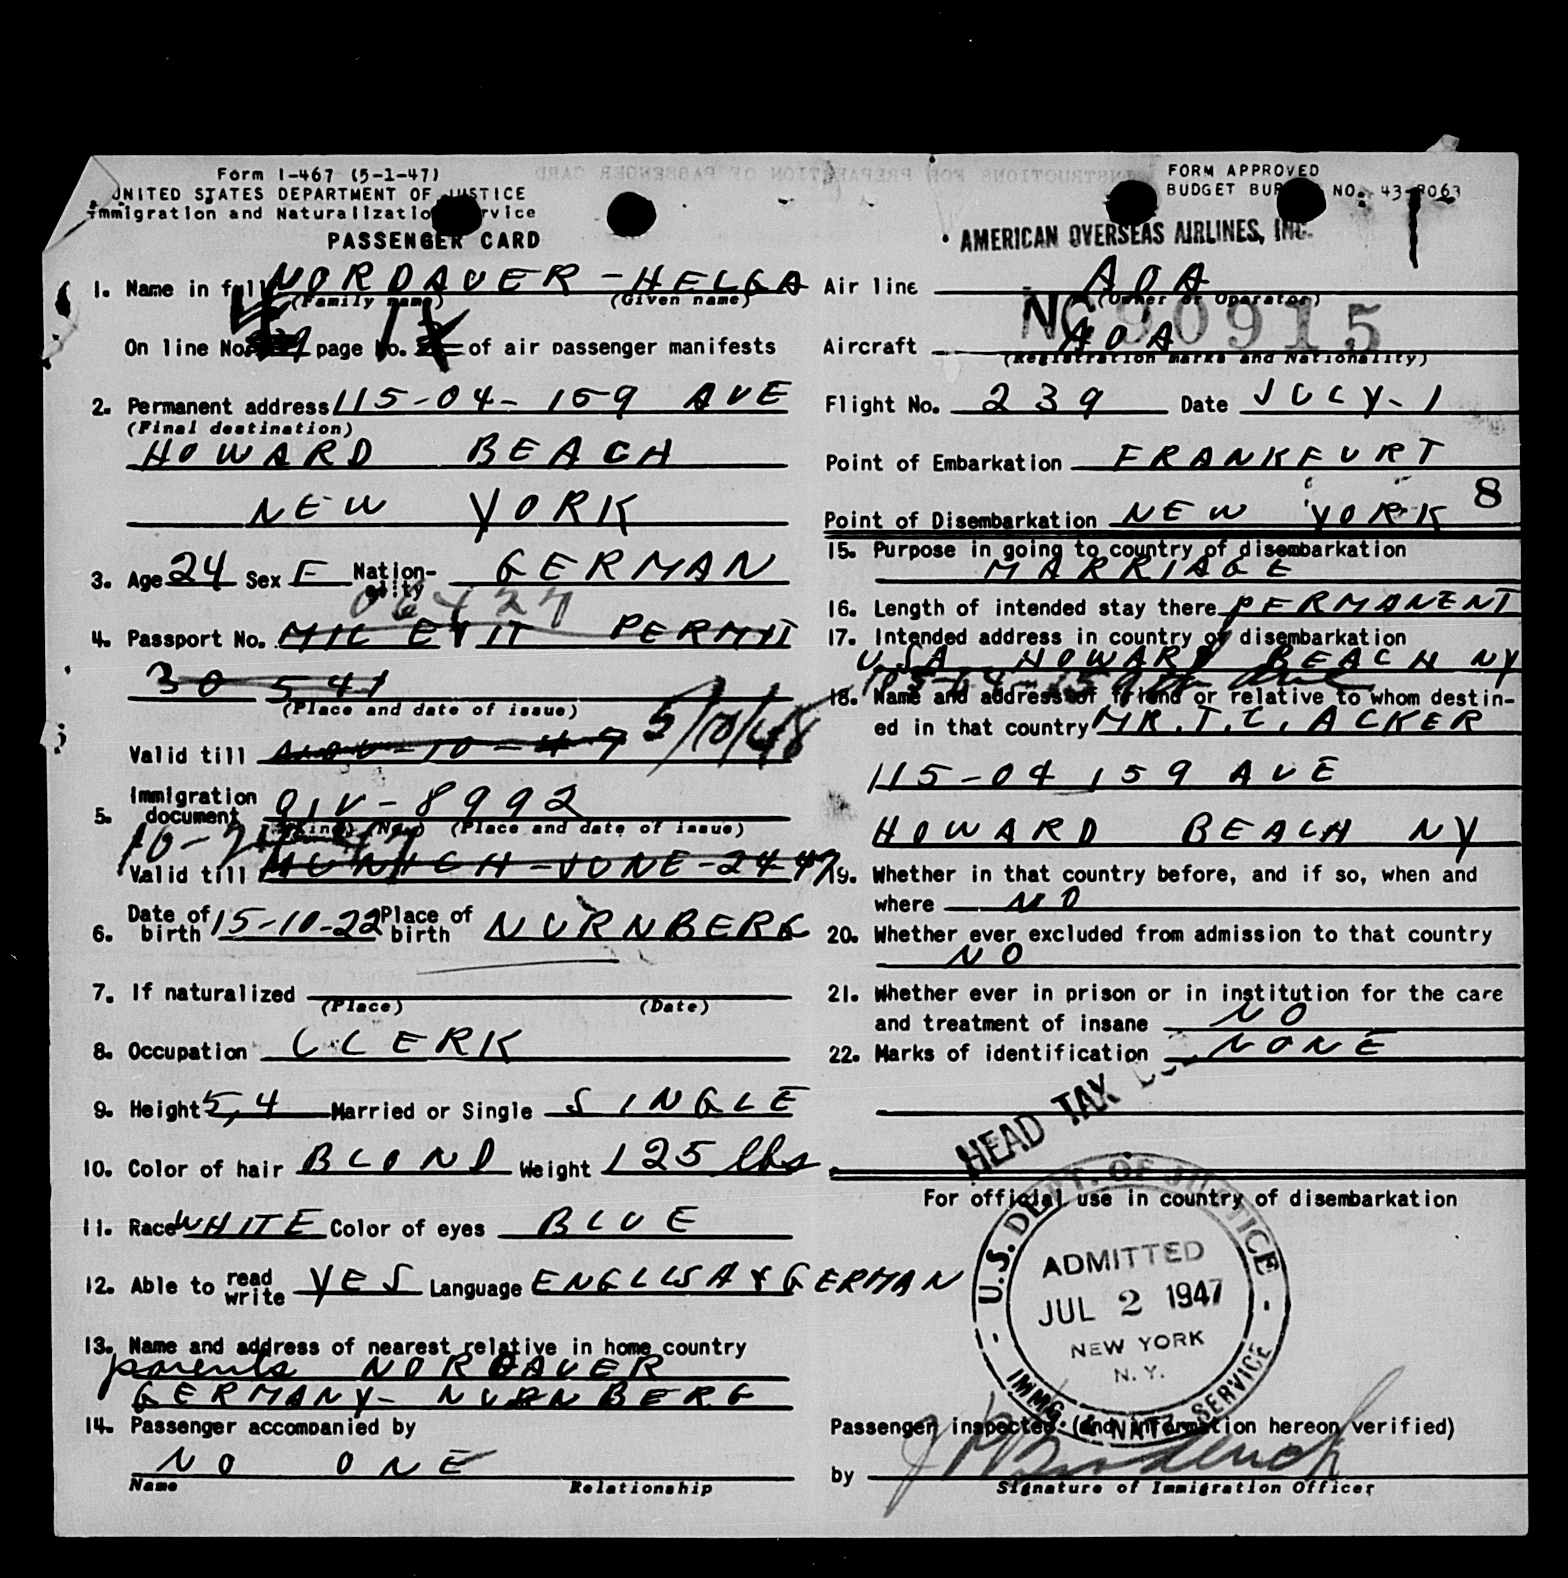 Form I-467 (5-1-47)
UNITED STATES DEPARTMENT OF JUSTICE
Immigration and Naturalization Service
PASSENGER CARD
1. Name in full NORDAUER - HELGA
(Family name) (Given name)
On line No. page No. of air passenger manifests
2. Permanent address 115-04- 159 AVE
(Final destination)
HOWARD BEACH
NEW YORK
3. Age 24 Sex F Nation-ality GERMAN
4. Passport No. MIL EXIT PERMIT
30 541
(Place and date of issue)
Valid till 5/10/48
5. Immigration document QIV-8992
(Kind) (No.) (Place and date of issue)
Valid till MUNICH - JUNE - 24 47
6. Date of birth 15-10-22 Place of birth NURNBERG
7. If naturalized
(Place) (Date)
8. Occupation CLERK
9. Height 5,4 Married or Single SINGLE
10. Color of hair BLOND Weight 125 lbs
11. Race WHITE Color of eyes BLUE
12. Able to read write YES Language ENGLISH & GERMAN
13. Name and address of nearest relative in home country
parents NORDAUER
GERMANY- NURNBERG
14. Passenger accompanied by
NO ONE
Name Relationship
FORM APPROVED
BUDGET BUREAU NO. 43-R063
AMERICAN OVERSEAS AIRLINES, INC.
Air line AOA
(Owner or Operator)
NC90915
Aircraft AOA
(Registration marks and Nationality)
Flight No. 239 Date JULY-1
Point of Embarkation FRANKFURT
8
Point of Disembarkation NEW YORK
15. Purpose in going to country of disembarkation
MARRIAGE
16. Length of intended stay there PERMANENT
17. Intended address in country of disembarkation
USA HOWARD BEACH NY
18. Name and address of friend or relative to whom destin-
ed in that country MR. T.C. ACKER
115-04 159 AVE
HOWARD BEACH NY
19. Whether in that country before, and if so, when and
where NO
20. Whether ever excluded from admission to that country
NO
21. Whether ever in prison or in institution for the care
and treatment of insane NO
22. Marks of identification NONE
HEAD TAX
For official use in country of disembarkation
U.S. DEPT. OF JUSTICE
ADMITTED
JUL 2 1947
NEW YORK
N.Y.
IMMG. & NATZ. SERVICE
Passenger inspected (and information hereon verified)
by
Signature of Immigration Officer